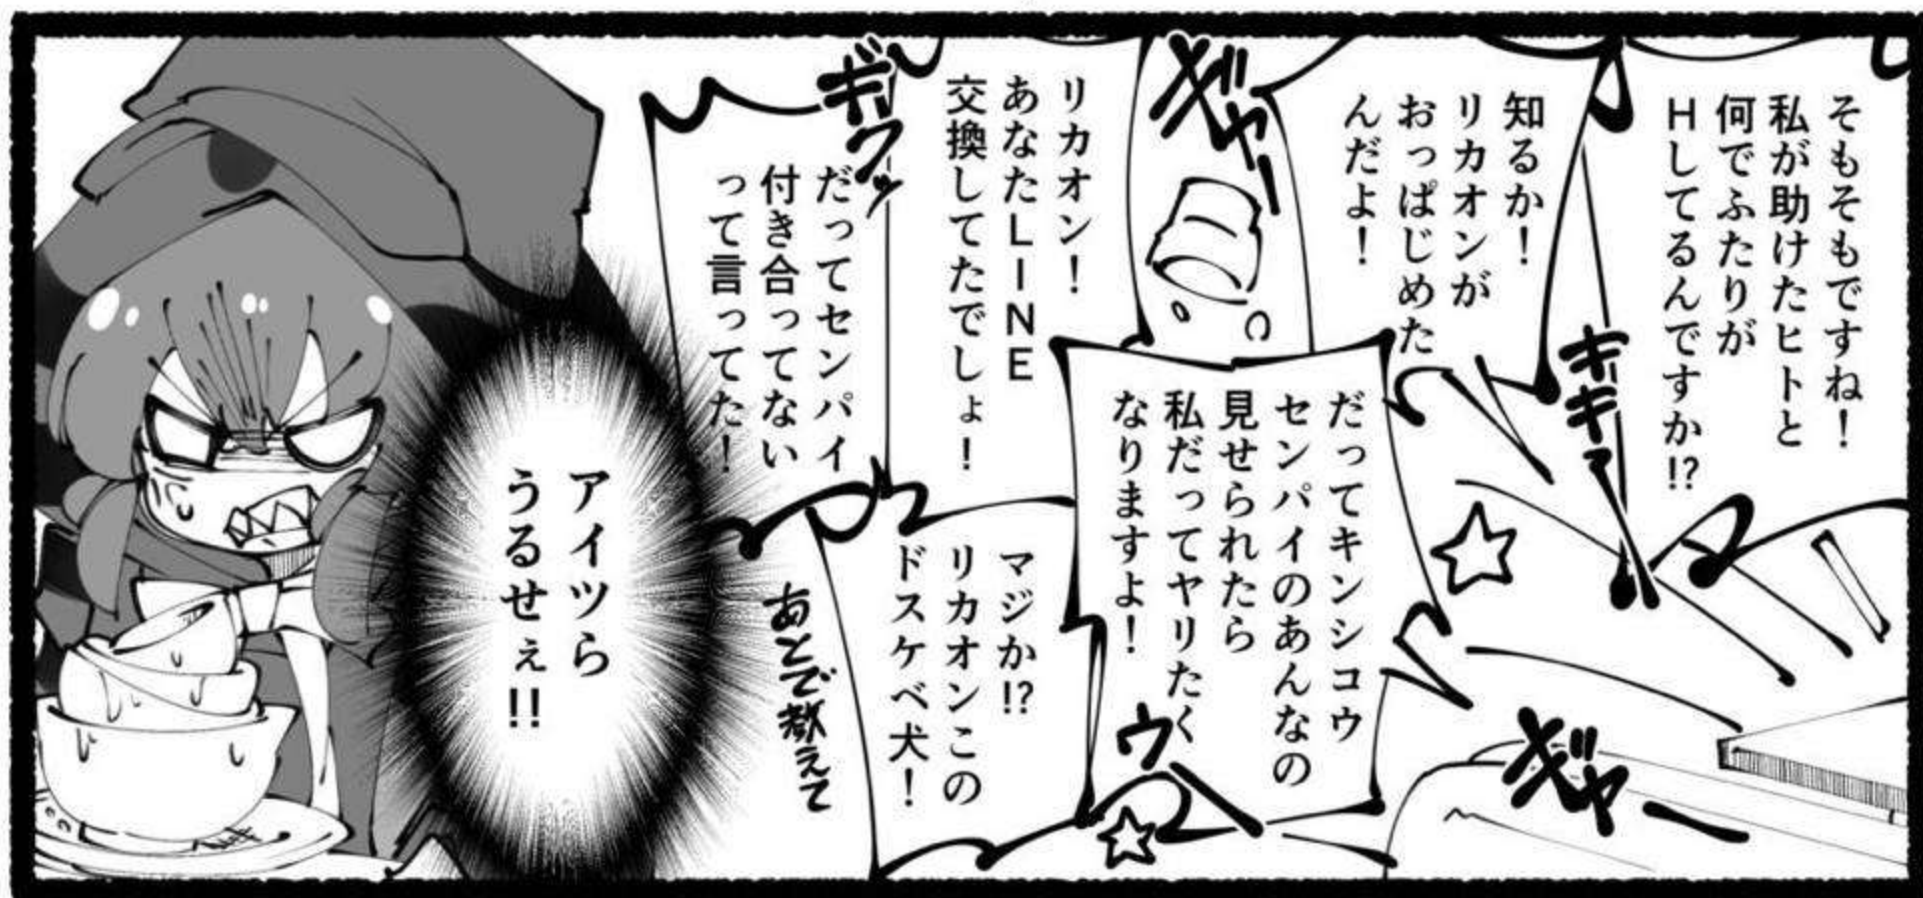 そもそもですね!
私が助けたヒトと
何でふたりが
Hしてるんですか!?
知るか!
リカオンが
おっぱじめた
んだよ!
ギャー
だってキンシコウ
センパイのあんなの
見せられたら
私だってヤリたく
なりますよ!
ギャー
リカオン!
あなたLINE
交換してたでしょ!
マジか!?
リカオンこの
ドスケベ犬!
だってセンパイ
付き合ってない
って言ってた!
あとで教えて
アイツら
うるせぇ!!